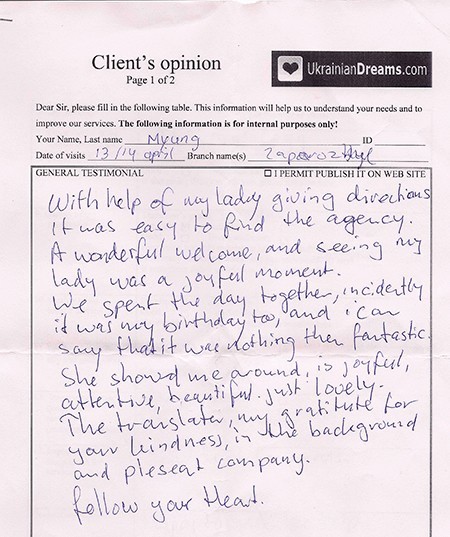 Client's opinion
Page 1 of 2
UkrainianDreams.com
Dear Sir, please fill in the following table. This information will help us to understand your needs and to
improve our services. The following information is for internal purposes only!
Your Name, Last name Myung ID
Date of visits 13/14 april Branch name(s)
GENERAL TESTIMONIAL ☐ I PERMIT PUBLISH IT ON WEB SITE
With help of my lady giving directions
it was easy to find the agency.
A wonderful welcome, and seeing my
lady was a joyful moment.
We spent the day together, incidently
it was my birthday too, and i can
say that it was nothing then fantastic.
She showed me around, is joyful,
attentive, beautiful. just lovely.
The translater, my gratitute for
your kindness, in the background
and pleseat company.
follow your Heart.